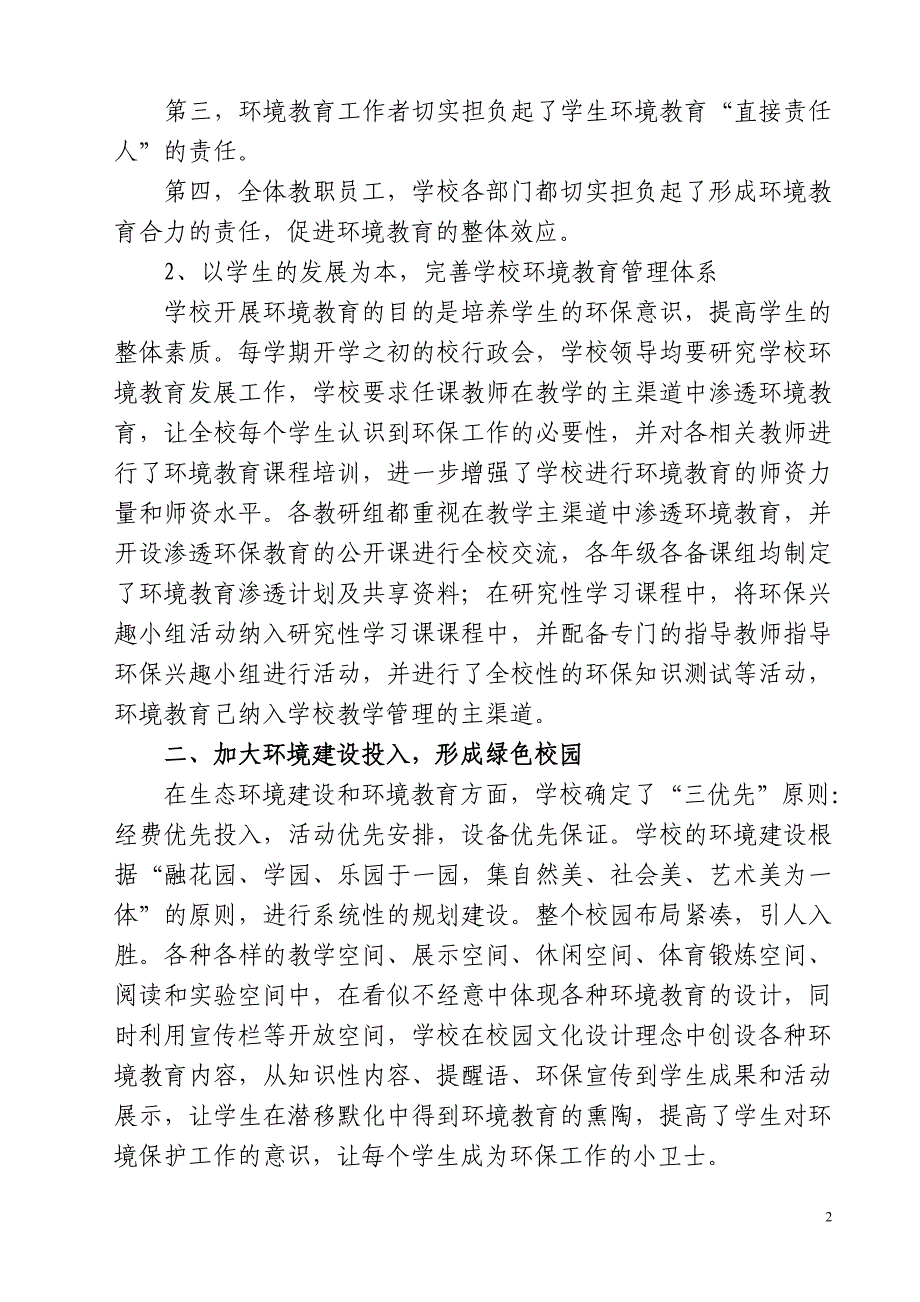 第三，环境教育工作者切实担负起了学生环境教育“直接责任
人”的责任。
第四，全体教职员工，学校各部门都切实担负起了形成环境教
育合力的责任，促进环境教育的整体效应。
2、以学生的发展为本，完善学校环境教育管理体系
学校开展环境教育的目的是培养学生的环保意识，提高学生的
整体素质。每学期开学之初的校行政会，学校领导均要研究学校环
境教育发展工作，学校要求任课教师在教学的主渠道中渗透环境教
育，让全校每个学生认识到环保工作的必要性，并对各相关教师进
行了环境教育课程培训，进一步增强了学校进行环境教育的师资力
量和师资水平。各教研组都重视在教学主渠道中渗透环境教育，并
开设渗透环保教育的公开课进行全校交流，各年级各备课组均制定
了环境教育渗透计划及共享资料；在研究性学习课程中，将环保兴
趣小组活动纳入研究性学习课课程中，并配备专门的指导教师指导
环保兴趣小组进行活动，并进行了全校性的环保知识测试等活动，
环境教育己纳入学校教学管理的主渠道。
二、加大环境建设投入，形成绿色校园
在生态环境建设和环境教育方面，学校确定了“三优先”原则：
经费优先投入，活动优先安排，设备优先保证。学校的环境建设根
据“融花园、学园、乐园于一园，集自然美、社会美、艺术美为一
体”的原则，进行系统性的规划建设。整个校园布局紧凑，引人入
胜。各种各样的教学空间、展示空间、休闲空间、体育锻炼空间、
阅读和实验空间中，在看似不经意中体现各种环境教育的设计，同
时利用宣传栏等开放空间，学校在校园文化设计理念中创设各种环
境教育内容，从知识性内容、提醒语、环保宣传到学生成果和活动
展示，让学生在潜移默化中得到环境教育的熏陶，提高了学生对环
境保护工作的意识，让每个学生成为环保工作的小卫士。
2